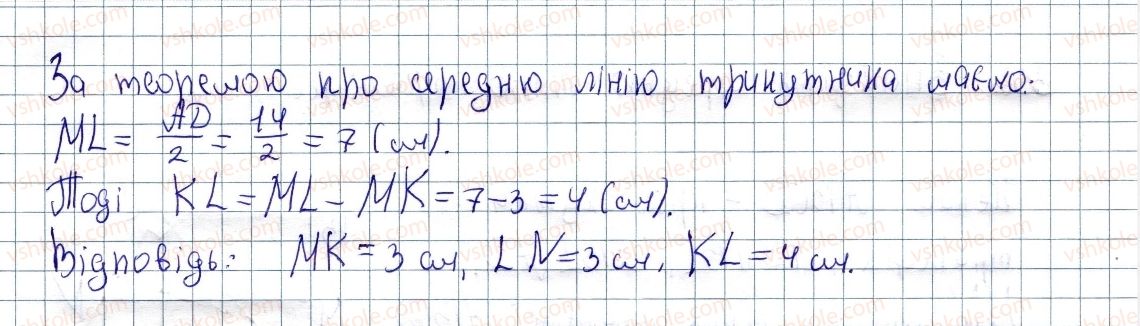 За теоремою про середню лінію трикутника маємо:
ML = AD/2 = 14/2 = 7 (см).
Тоді KL = ML - MK = 7 - 3 = 4 (см).
Відповідь: MK = 3 см, LN = 3 см, KL = 4 см.